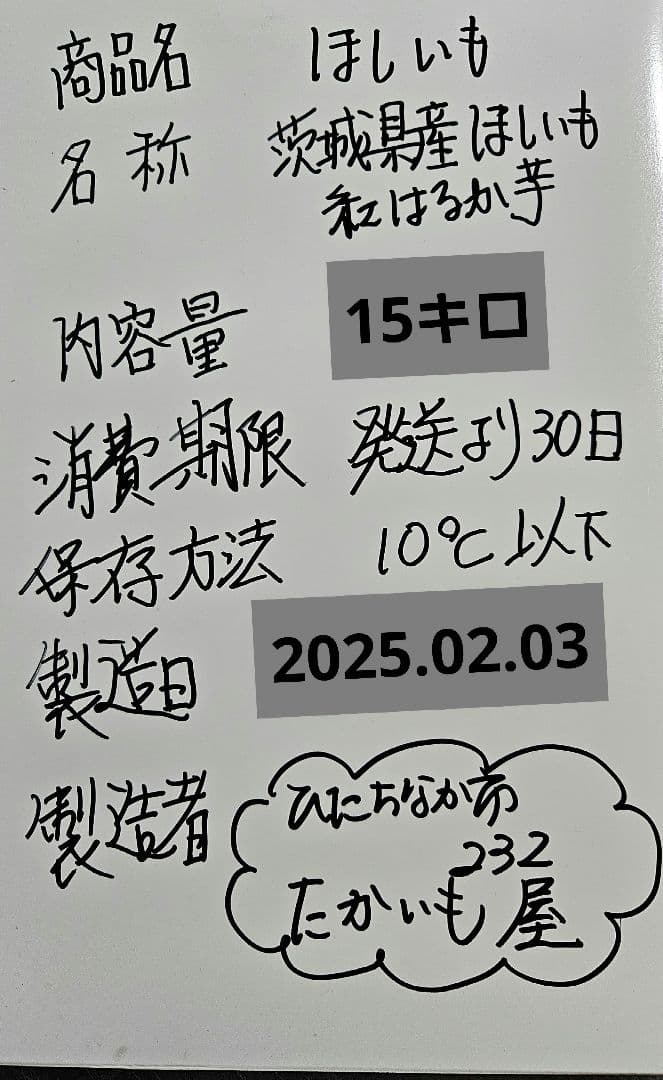 商品名 ほしいも
名称 茨城県産ほしいも
紅はるか芋
内容量 15キロ
消費期限 発送より30日
保存方法 10℃以下
製造日 2025.02.03
製造者 ひにちなか市
232
たかいも屋